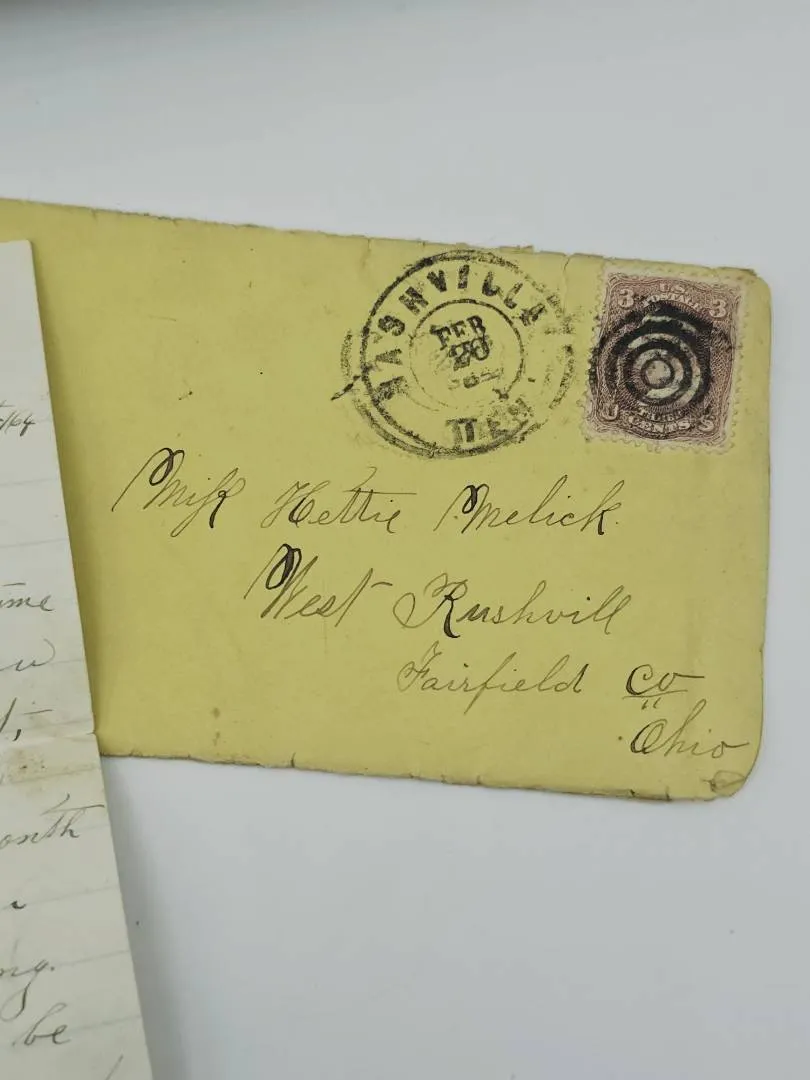 NASHVILLE
FEB
20
TEN
3 U.S. 3
POSTAGE
U CENTS S
Miss Hettie Melick.
West Rushvill
Fairfield Co
Ohio
64
ome
onth
ng.
be